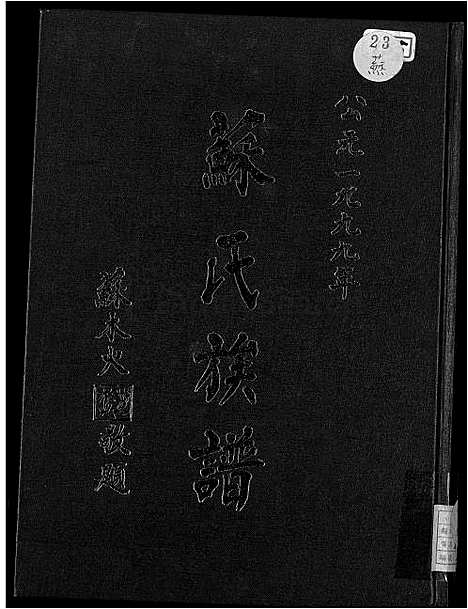 23
蘇
公元一九九九年
蘇氏族譜
蘇木火敬題